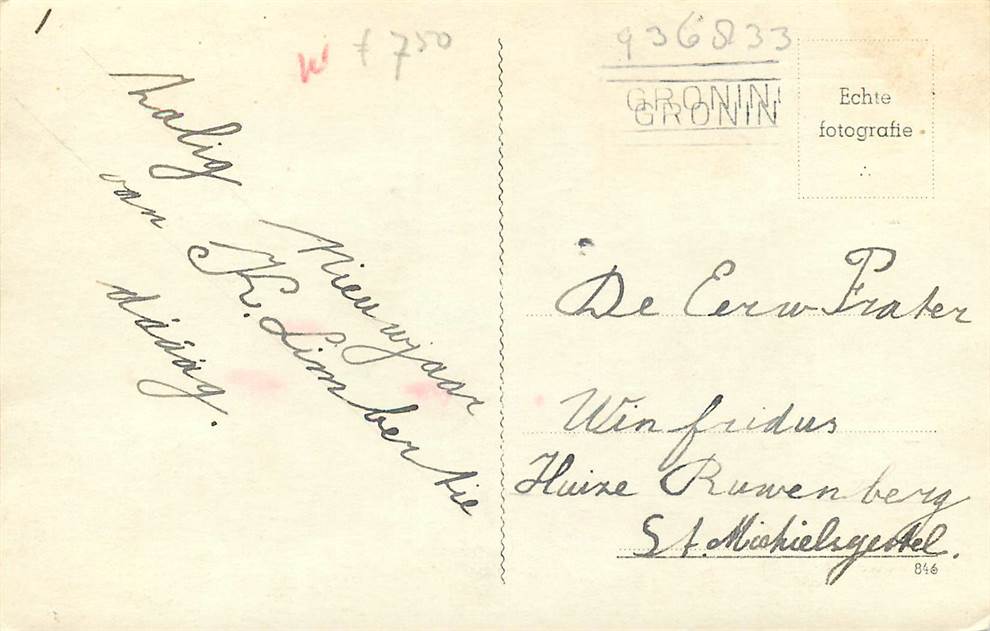 f 750
936833
GRONIN
GRONIN
Echte
fotografie
Zalig Nieuwjaar
van K. Limbertie
dááág.
De Eerw Frater
Winfridus
Huize Ruwenberg
St. Michielsgestel.
846